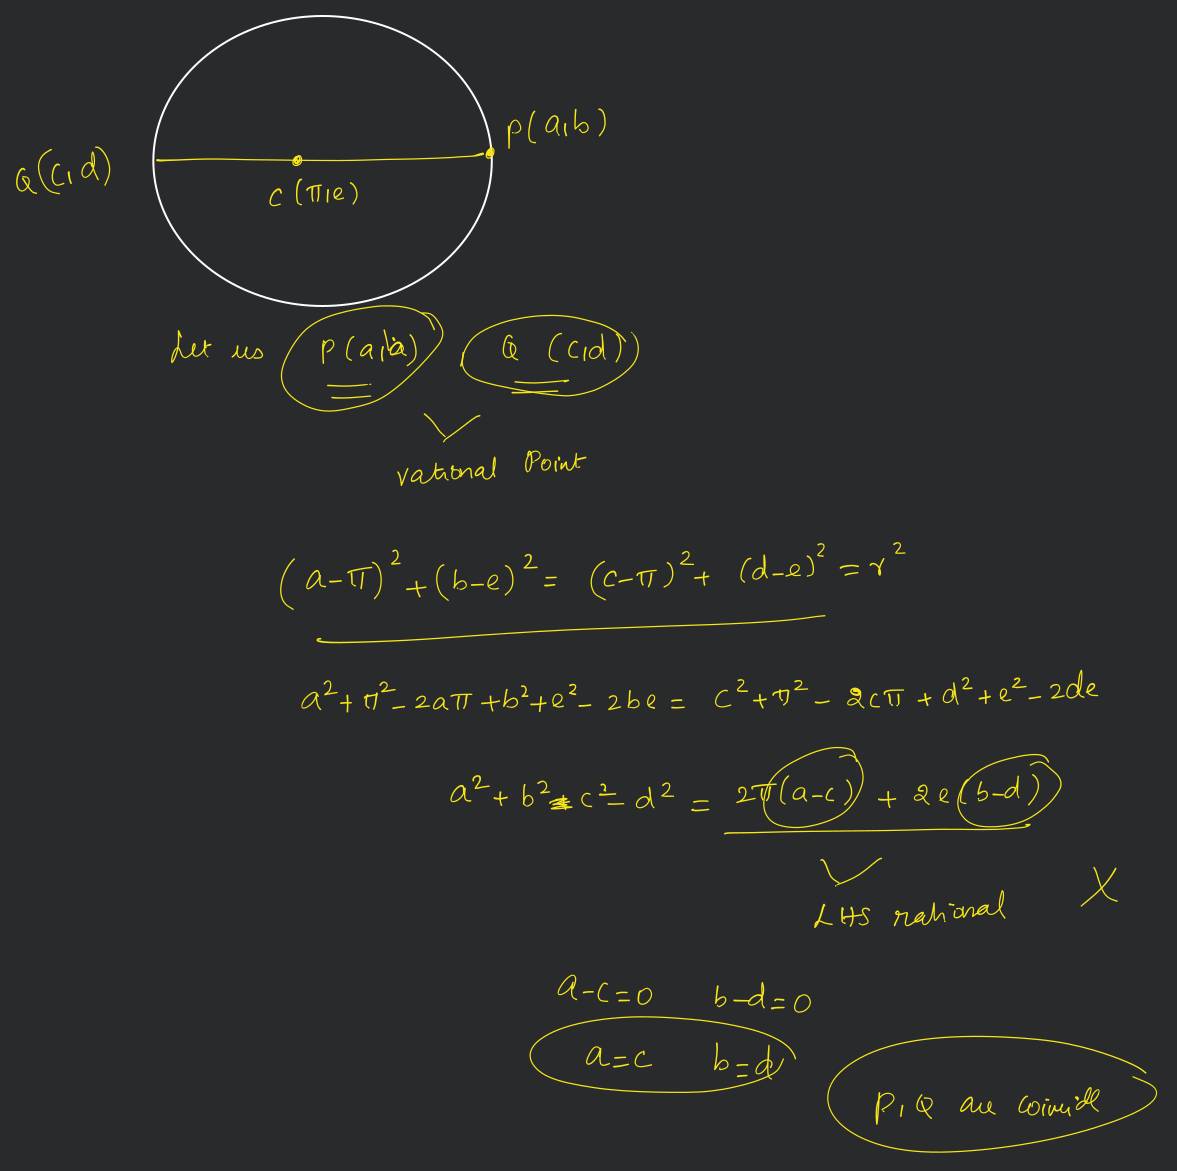 P(a,b)
Q(c,d)
C(π,e)
Let us P(a,b) Q (c,d)
rational Point
(a-π)² + (b-e)² = (c-π)² + (d-e)² = r²
a² + π² - 2aπ + b² + e² - 2be = c² + π² - 2cπ + d² + e² - 2de
a² + b² - c² - d² = 2π(a-c) + 2e(b-d)
LHS rational X
a-c=0 b-d=0
a=c b=d
P, Q are coincide